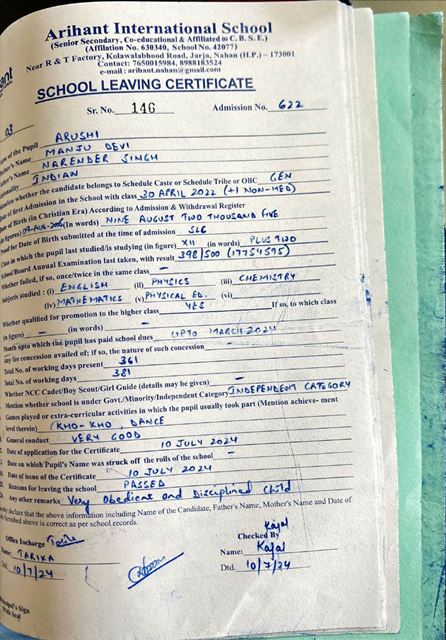 Arihant International School
(Senior Secondary, Co-educational & Affiliated to C. B. S. E.)
(Affilation No. 630340, School No. 42077)
Near R & T Factory, Kolawalabhood Road, Jarja, Nahan (H.P.) - 173001
Contact: 7650015984, 8988183524
e-mail : arihant.nahan@gmail.com
SCHOOL LEAVING CERTIFICATE
Sr. No. 146 Admission No. 622
03
of the Pupil ARUSHI
Name MANJU DEVI
Name NARENDER SINGH
INDIAN
whether the candidate belongs to Schedule Caste or Schedule Tribe or OBC GEN
of first Admission in the School with class 30 APRIL 2022 (+1 NON-MED)
of Birth (in Christian Era) According to Admission & Withdrawal Register
(in words) NINE AUGUST TWO THOUSAND FIVE
for Date of Birth submitted at the time of admission SLC
Class in which the pupil last studied/is studying (in figure) XII (in words) PLUS TWO
School/Board Annual Examination last taken, with result 398/500 (17754595)
Whether failed, if so, once/twice in the same class –
Subjects studied : (i) ENGLISH (ii) PHYSICS (iii) CHEMISTRY
(iv) MATHEMATICS (v) PHYSICAL ED. (vi)
Whether qualified for promotion to the higher class YES If so, to which class
(in figure) – (in words) –
Month upto which the pupil has paid school dues UPTO MARCH 2024
Any fee concession availed of; if so, the nature of such concession –
Total No. of working days present 361
Total No. of working days 381
Whether NCC Cadet/Boy Scout/Girl Guide (details may be given) –
Mention whether school is under Govt./Minority/Independent Category INDEPENDENT CATEGORY
Games played or extra-curricular activities in which the pupil usually took part (Mention achieve- ment
level therein) KHO-KHO, DANCE
General conduct VERY GOOD
Date of application for the Certificate 10 JULY 2024
Date on which Pupil's Name was struck off the rolls of the school –
Date of issue of the Certificate 10 JULY 2024
Reasons for leaving the school PASSED
Any other remarks Very Obedient and Disciplined child
declare that the above information including Name of the Candidate, Father's Name, Mother's Name and Date of
furnished above is correct as per school records.
Office Incharge
Kajal
Checked By
TARIKA Name: Kajal
Dtd. 10/7/24 Dtd. 10/7/24
Principal's Sign
With Seal